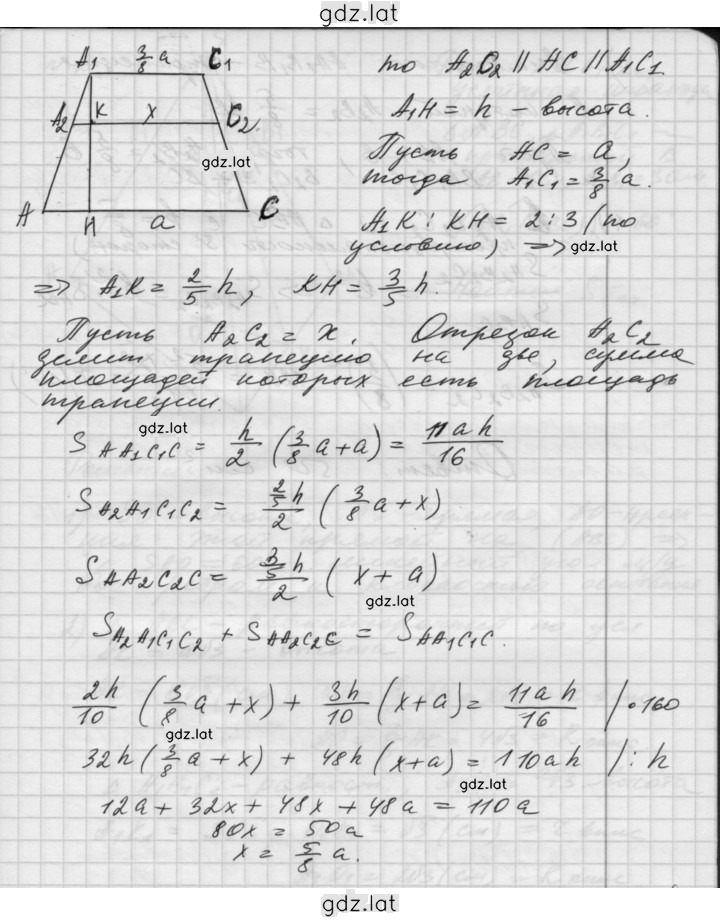 gdz.lat
A₁ 3/8 a C₁
то A₂C₂ || AC || A₁C₁
A₂ K x C₂
A₁H = h – высота.
gdz.lat
Пусть AC = a,
тогда A₁C₁ = 3/8 a.
A H a C
A₁K : KH = 2 : 3 (по
условию) => gdz.lat
=> A₁K = 2/5 h, KH = 3/5 h.
Пусть A₂C₂ = x. Отрезок A₂C₂
делит трапецию на две, сумма
площадей которых есть площадь
трапеции.
gdz.lat
S AA₁C₁C = h/2 (3/8 a + a) = 11ah/16
S A₂A₁C₁C₂ = (2/5 h)/2 (3/8 a + x)
S AA₂C₂C = (3/5 h)/2 (x + a)
gdz.lat
S A₂A₁C₁C₂ + S AA₂C₂C = S AA₁C₁C.
2h/10 (3/8 a + x) + 3h/10 (x + a) = 11ah/16 /·160
gdz.lat
32h (3/8 a + x) + 48h (x + a) = 110ah /: h
gdz.lat
12a + 32x + 48x + 48a = 110a
80x = 50a
x = 5/8 a.
gdz.lat